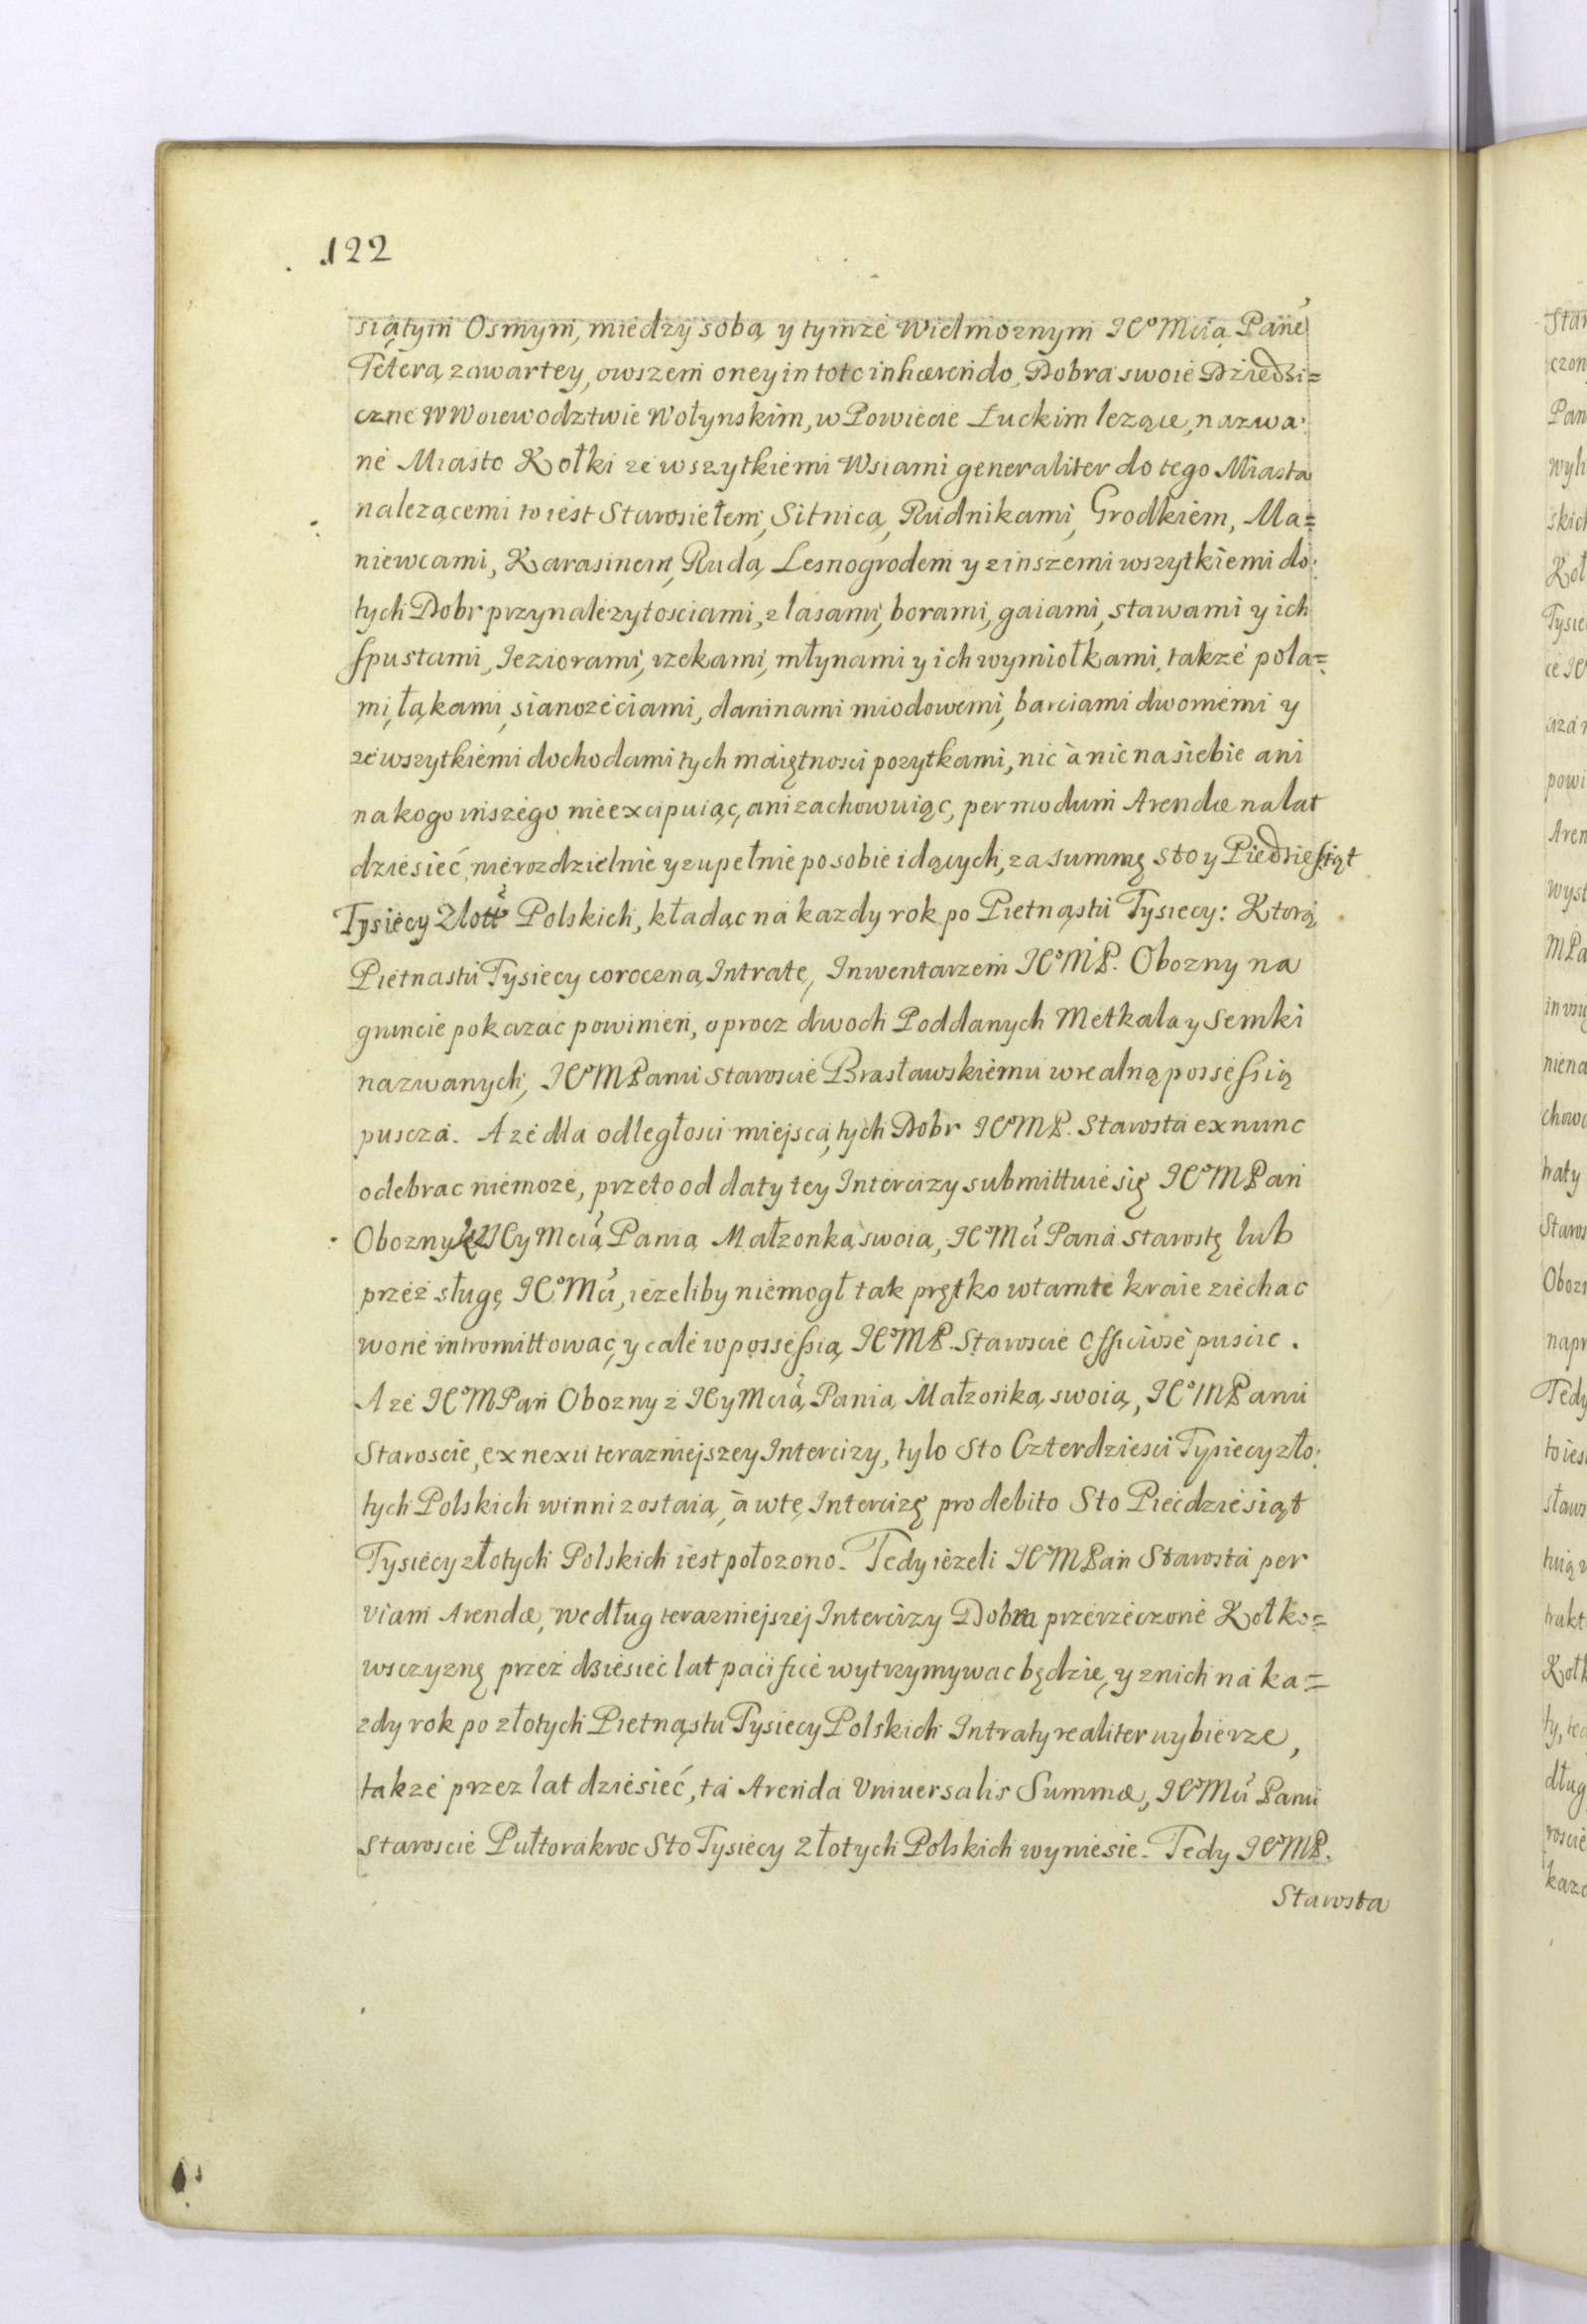 122
siątym Osmym, między sobą y tymże Wielmoznym JCoMcią Pané
Teterą zawartey, owszem oney in toto inhærendo, Dobra swoie Dziedzi=
czne W Woiewodztwie Wołynskim, w Powiecie Łuckim lezące, nazwa:
né Miasto Kołki ze wszytkiemi Wsiami generaliter do tego Miasta
nalezącemi to iést Starosiełem, Sitnicą, Rudnikami, Grodkiem, Ma=
niewcami, Karasinem, Rudą, Lesnogrodem y z inszemi wszytkiemi do:
tych Dobr przynalezytosciami, z lasami, borami, gaiami, stawami y ich
spustami, Jeziorami, rzekami, młynami y ich wymiołkami, takze pola=
mi, łąkami, sianozęciami, daninami miodowemi, barciami dwornemi y
ze wszytkiemi dochodami tych maiętnosci pozytkami, nic à nic na siebie ani
na kogo inszego nie excipuiąc, ani zachowuiąc, per modum Arendæ na lat
dziesieć nierozdzielnie y zupełnie po sobie idących, za summę sto y Piedziesiąt
Tysięcy Złott Polskich, kładąc na kazdy rok po Piętnąstu Tysięcy: Ktorą
Piętnastu Tysięcy coroczną Intratę, Inwentarzem JCoMP. Obozny na
gruncie pokazac powinien, oprocz dwoch Poddanych Metkala y Semki
nazwanych, JCoMPanu Staroscie Brasławskiemu w realną possessią
puscza. A ze dla odległosci miejsca, tych Dobr JCoMP. Starosta ex nunc
odebrac niemoze, przeto od daty tey Intercizy submittuie się JCoMPan
Obozny z JCy Mcią Panią Małzonką swoią, JCoMci Pana Starostę lub
przez sługę JCoMci, iezeliby niemogł tak prętko w tamte kraie ziechac
w one intromittowac, y cale w possessią JCoMP. Staroscie Officiose puscic.
A ze JCoMPan Obozny z JCy Mcią Panią Małzonką swoią, JCoMPanu
Staroscie, ex nexu terazniejszey Intercizy, tylo Sto Czterdziesci Tysięcy zło:
tych Polskich winni zostaią, à w tę Intercizę pro debito Sto Pięcdziesiąt
Tysięcy złotych Polskich iest połozono. Tedy iezeli JCoMPan Starosta per
viam Arendæ, według terazniejszej Intercizy Dobra przerzeczone Kołko=
wsczyznę przez dziesięc lat pacifice wytrzymywac będzie, y z nich na ka=
zdy rok po złotych Piętnąstu Tysięcy Polskich Intraty realiter wybierze,
takze przez lat dziesieć, ta Arenda Vniuersalis Summæ, JCoMci Panu
Staroscie Pułtorakroc Sto Tysięcy Złotych Polskich wyniesie. Tedy JCoMP.
Starosta